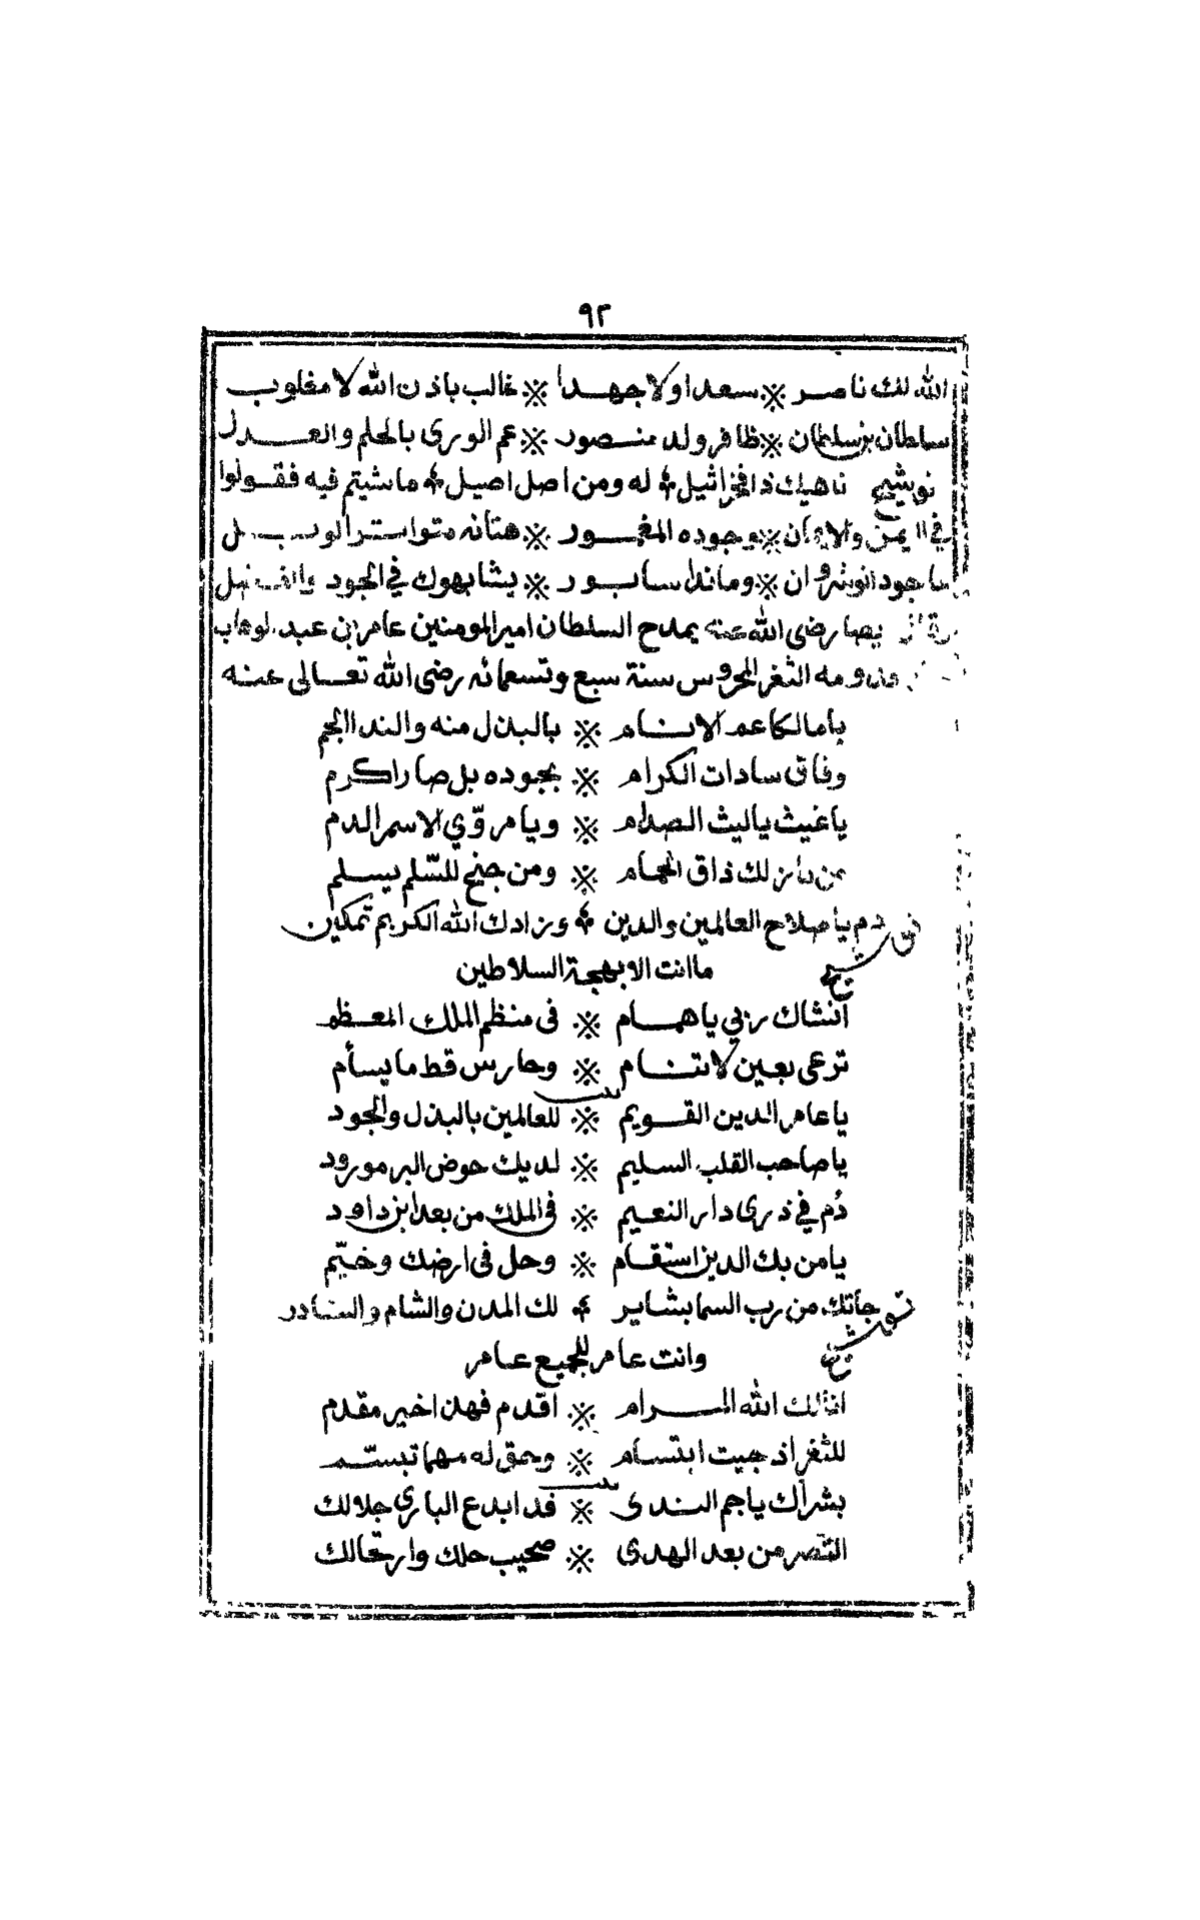 ٩٢
الله لك ناصر ※ سعدا ولا جهدا ※ غالب باذن الله لا مغلوب
سلطان بن سليمان ※ ظافر ولد منصور ※ عم الورى بالحلم والعدل
توشيح ناهيك ذا فخر اثيل ※ له ومن اصل اصيل ※ ما شيتم فيه فقولوا
في اليمن والايمان ※ وجوده المغمور ※ هتانه متواتر الوبل
ما جود انوشروان ※ وما ندا سابور ※ يشابهوك في الجود والفضل
وقال ايضا رضى الله عنه يمدح السلطان امير المومنين عامر ابن عبد الوهاب
قدومه الثغر المحروس سنة سبع وتسعمائه رضى الله تعالى عنه
يا مالكا عم الانام ※ بالبذل منه والندا الجم
وفاق سادات الكرام ※ بجوده بل صار اكرم
يا غيث يا ليث الصدام ※ ويا مروّي الاسمر الدم
من بارز لك ذاق الحمام ※ ومن جنح للسّلم يسلم
توشيح دم يا صلاح العالمين والدين ※ وزادك الله الكريم تمكين
ما انت الا بهجة السلاطين
انشاك ربي يا همام ※ فى منظم الملك المعظم
ترعى بعين لا تنام ※ وحارس قط ما يسأم
بيت
يا عامر الدين القويم ※ للعالمين بالبذل والجود
يا صاحب القلب السليم ※ لديك حوض البر مورود
دُم في ذرى دار النعيم ※ فى الملك من بعد ابن داود
يا من بك الدين استقام ※ وحل فى ارضك وخيّم
توشيح جاتك من رب السما بشاير ※ لك المدن والشام والبنادر
وانت عامر للجميع عامر
انالك الله المرام ※ اقدم فهذا خير مقدم
للثغر اذ جيت ابتسام ※ وحق له مهما تبسّم
بيت
بشراك يا جم الندى ※ قد ابدع الباري جلالك
النصر من بعد الهدى ※ صحيب حلك وارتحالك